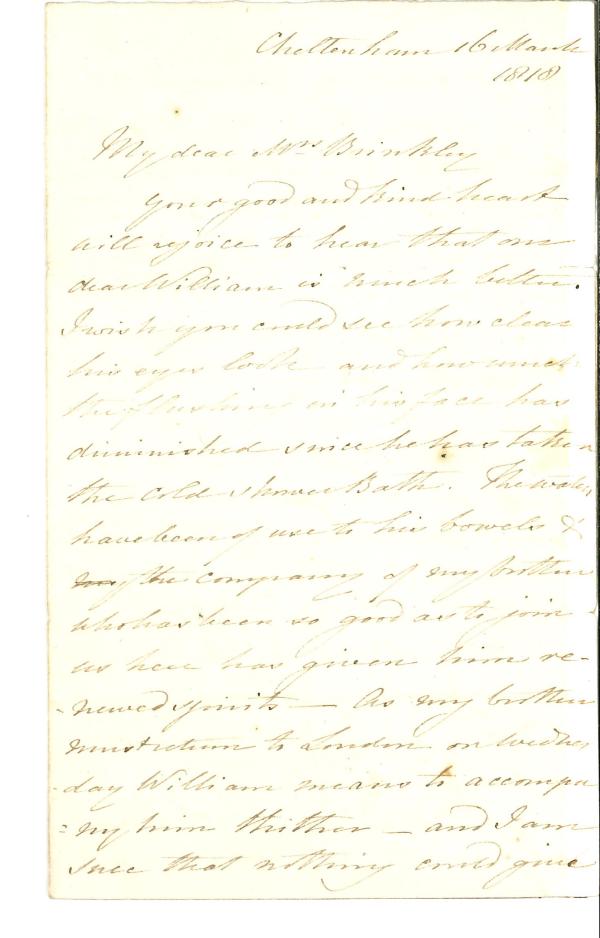 Cheltenham 16 March
1818
My dear Mrs Brinkley
your good and kind heart
will rejoice to hear that our
dear William is much better.
I wish you could see how clear
his eyes look and how much
the flushing in his face has
diminished since he has taken
the cold shower Bath. The waters
have been of use to his bowels &
my the company of my brother
who has been so good as to join
us here has given him re-
-newed spirits — As my brother
must return to London on Wednes
-day William means to accompa
=ny him thither — and I am
sure that nothing could give